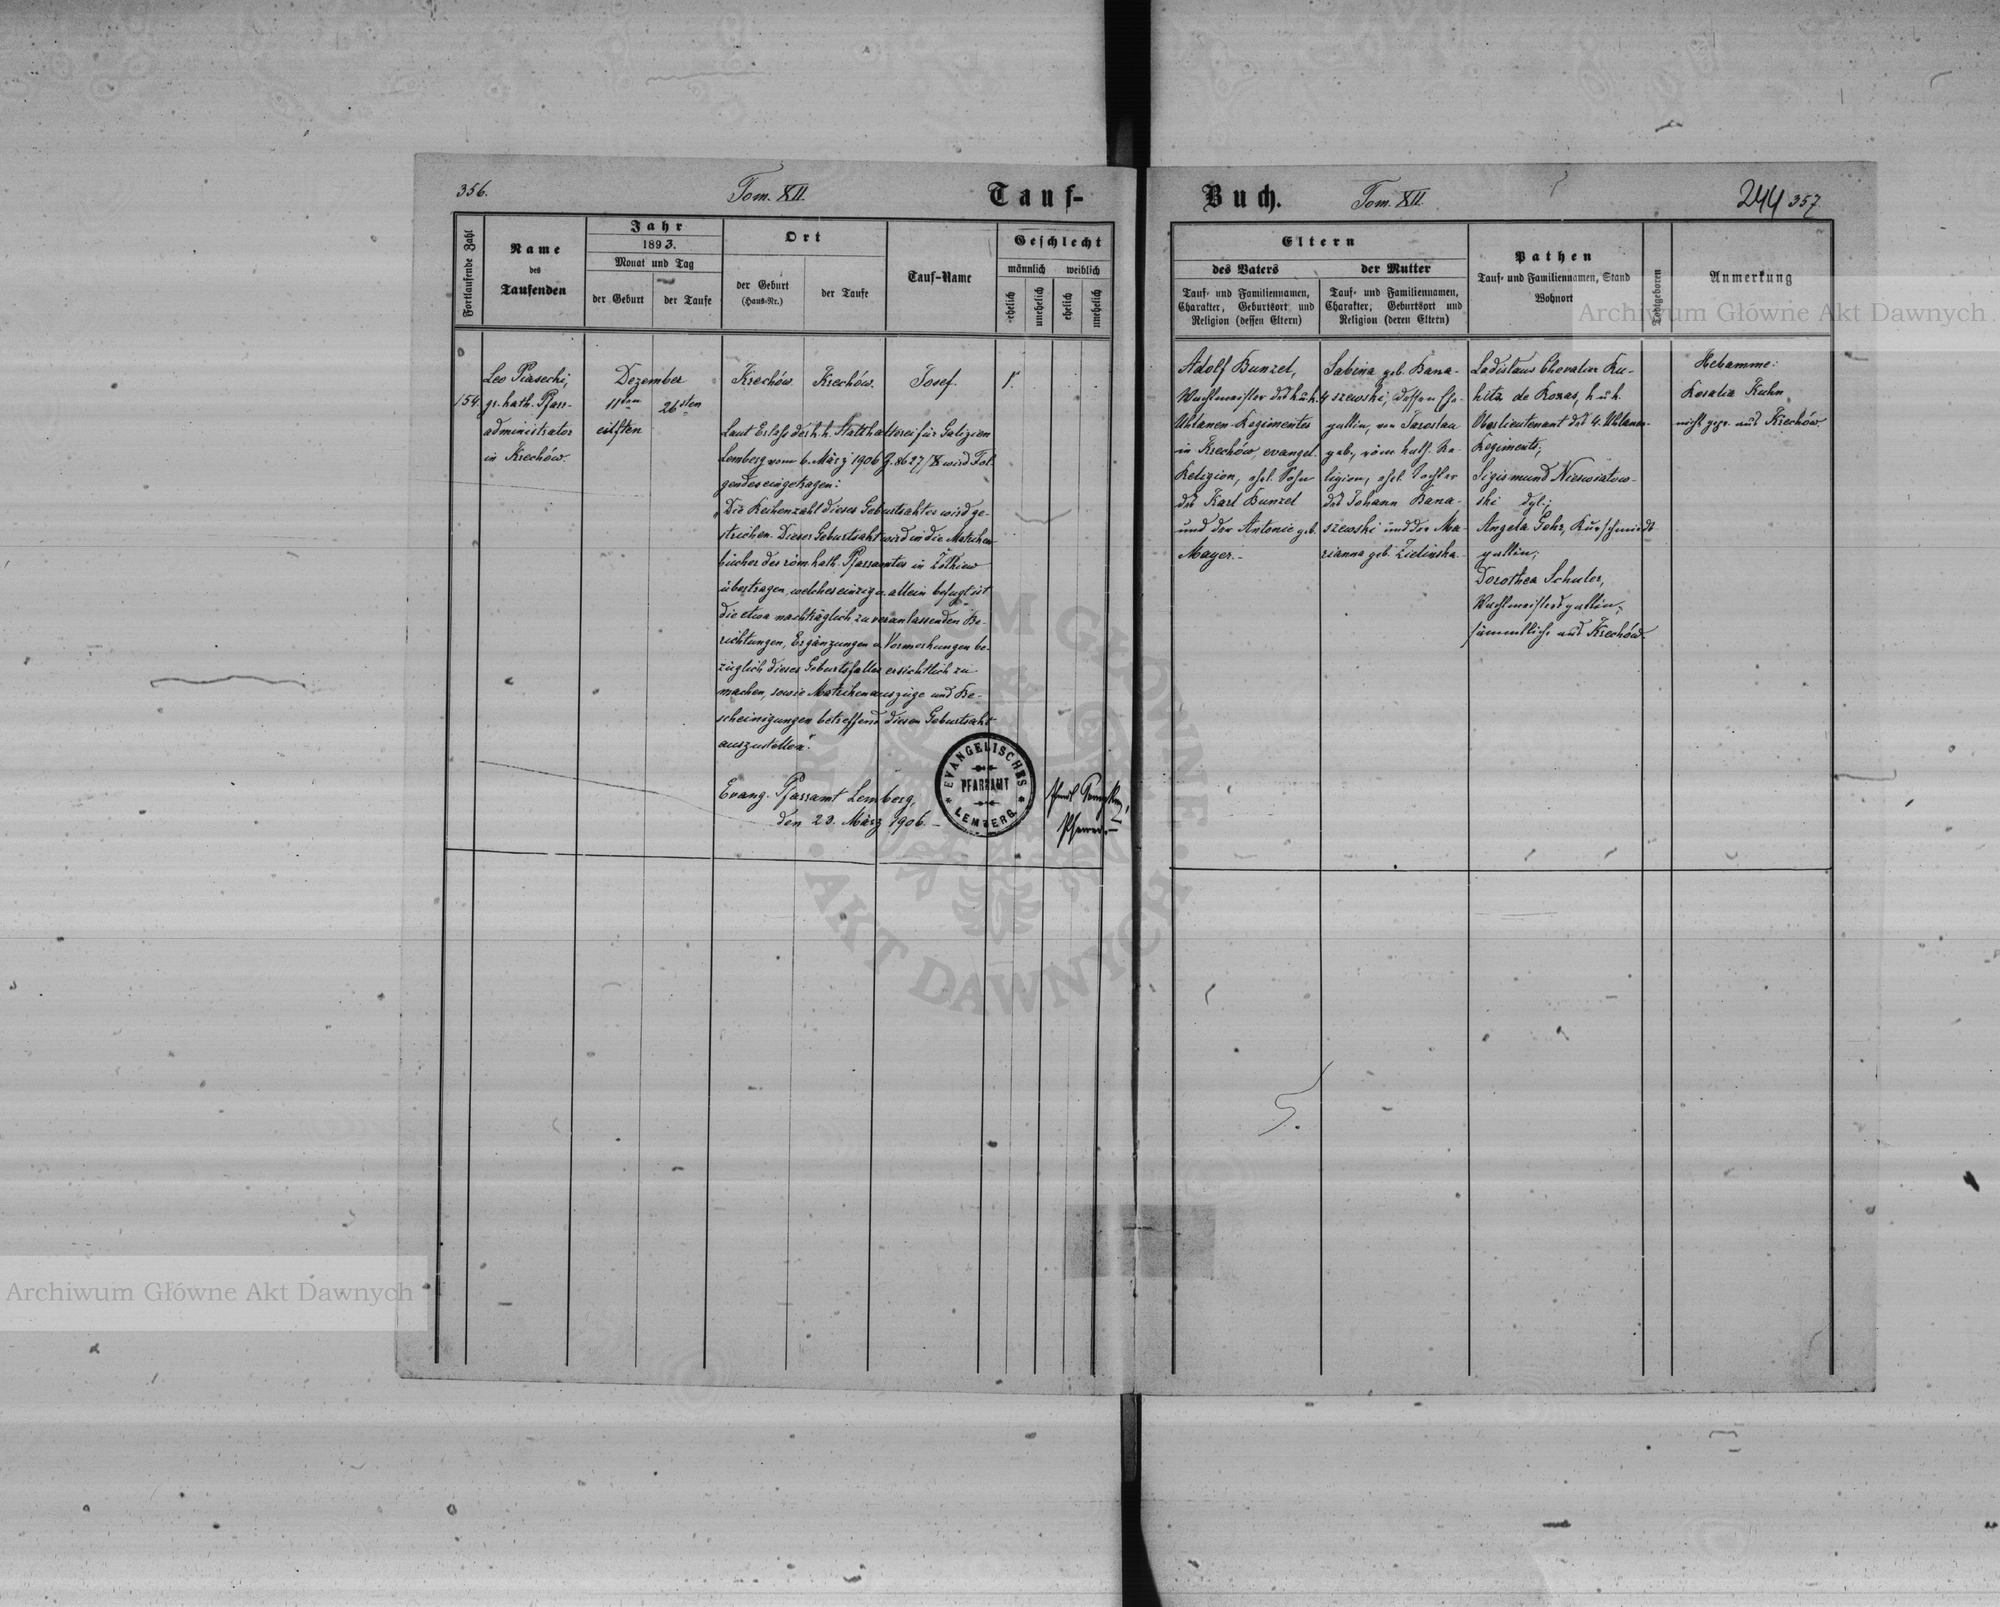 356.
Tom. XII.
Tauf-
Fortlaufende Zahl
Name
des
Taufenden
Jahr
1893.
Monat und Tag
der Geburt
der Taufe
Ort
der Geburt
(Haus-Nr.)
der Taufe
Tauf-Name
Geschlecht
männlich
weiblich
ehelich
unehelich
ehelich
unehelich
154
Leo Piasecki,
gr. kath. Pfarr-
administrator
in Krechów.
Dezember
11ten
eilften
26sten
Krechów.
Krechów.
Josef.
1.
Laut Erlaß der k. k. Statthalterei für Galizien
Lemberg vom 6. März 1906 Z. 8627/X wird Fol-
gendes eingetragen:
„Die Reihenzahl dieses Geburtsaktes wird ge-
strichen. Dieser Geburtsakt wird in die Matriken-
bücher des röm. kath. Pfarramtes in Zółkiew
übertragen, welches einzig u. allein befugt ist
die etwa nachträglich zu veranlassenden Be-
richtungen, Ergänzungen u. Vormerkungen be-
züglich dieses Geburtsfalles ersichtlich zu
machen, sowie Matrikenauszüge und Be-
scheinigungen betreffend diesen Geburtsakt
auszustellen".
Evang. Pfarramt Lemberg,
den 23. März 1906. –
EVANGELISCHES
PFARRAMT
LEMBERG
Pfarrer
Buch.
Tom. XII.
244
357
Eltern
des Vaters
der Mutter
Tauf- und Familiennamen,
Charakter, Geburtsort und
Religion (dessen Eltern)
Tauf- und Familiennamen,
Charakter, Geburtsort und
Religion (deren Eltern)
Pathen
Tauf- und Familiennamen, Stand
Wohnort
Todtgeboren
Anmerkung
Adolf Bunzel,
Wachtmeister des k. u. k. 4
Uhlanen-Regimentes
in Krechów, evangel.
Religion, ehel. Sohn
des Karl Bunzel
und der Antonie geb.
Mayer. –
Sabina geb. Bana-
szewski, dessen Ehe-
gattin, von Jaroslau
geb., röm. kath. Re-
ligion, ehel. Tochter
des Johann Bana-
szewski und der Ma-
rianna geb. Zielinska. –
Ladislaus Chevalier Ku-
de Rozas, k. u. k.
Oberlieutenant des 4. Uhlanen-
Regiments;
Sigismund Nieswiatow-
ski
Angela Gohr, Kurschmieds-
gattin;
Dorothea Schuler,
Wachtmeistersgattin,
sämmtliche aus Krechów.
Hebamme:
Rosalia Kuhn
nicht gepr. aus Krechów.
Archiwum Główne Akt Dawnych
Archiwum Główne Akt Dawnych